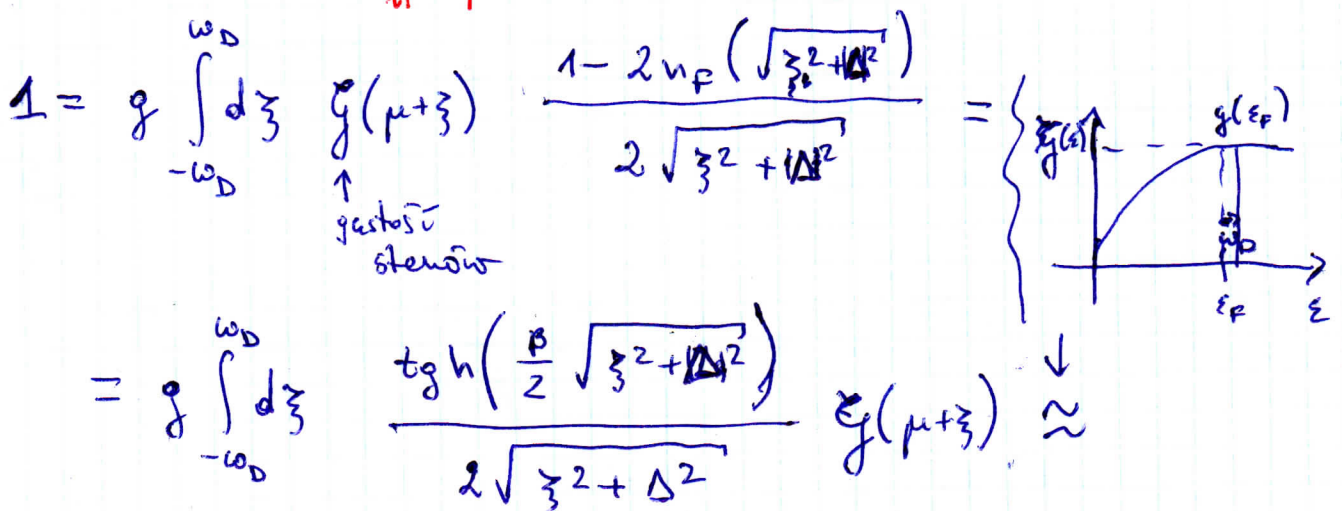 1 = g ∫_{-ω_D}^{ω_D} dξ g̃(μ+ξ) (1 - 2n_F(√(ξ²+|Δ|²))) / (2√(ξ²+|Δ|²)) =
gęstość
stanów
g̃(ε) g(ε_F)
ω_D
ε_F ε
= g ∫_{-ω_D}^{ω_D} dξ tgh(β/2 √(ξ²+|Δ|²)) / (2√(ξ²+Δ²)) g̃(μ+ξ) ≈